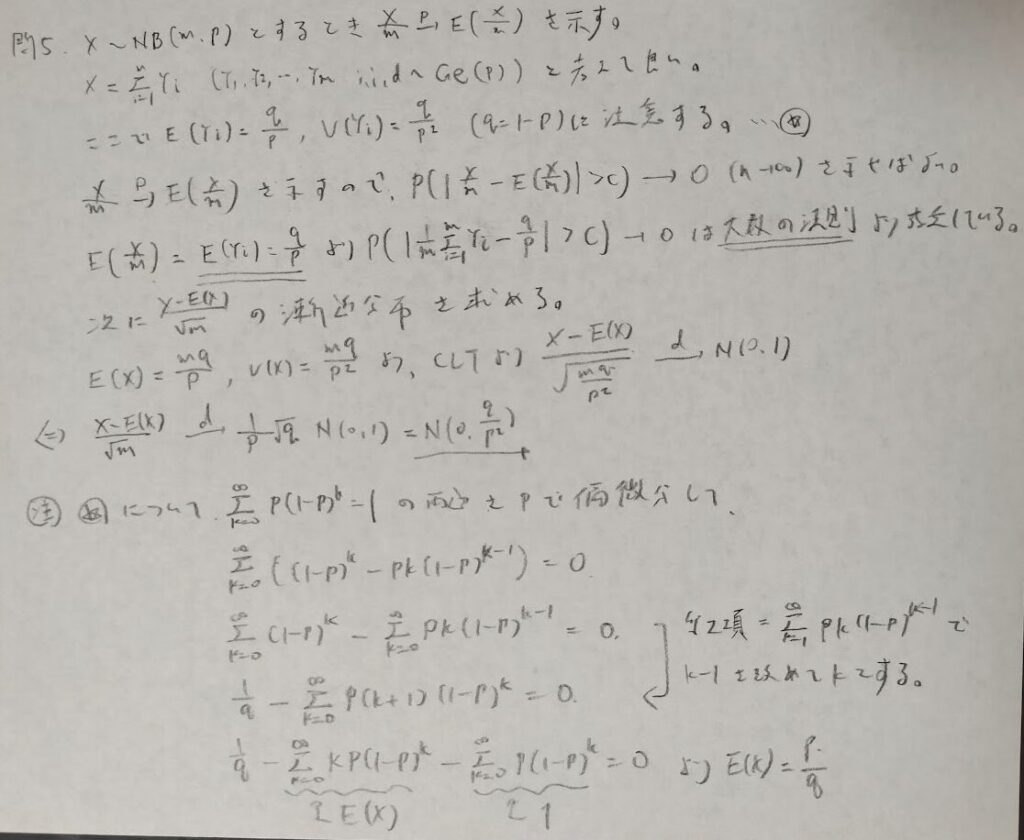 問5. X~NB(m.p) とするとき X/m →^P E(X/m) を示す。
X = Σ_{i=1}^{m} Yi (Y1, Y2, ... Ym i.i.d ~ Ge(p)) と考えて良い。
ここで E(Yi) = q/p, V(Yi) = q/p² (q=1-p) に注意する。 …※
X/m →^P E(X/m) を示すので, P(|X/m - E(X/m)| > c) → 0 (m→∞) を示せばよい。
E(X/m) = E(Yi) = q/p より P(|1/m Σ_{i=1}^{m} Yi - q/p| > c) → 0 は大数の法則より成立している。
次に X-E(X)/√m の漸近分布を求める。
E(X) = mq/p, V(X) = mq/p² より, CLTより X-E(X)/√(mq/p²) →^d N(0,1)
⇔ X-E(X)/√m →^d 1/p √q N(0,1) = N(0, q/p²)
注 ※ について. Σ_{k=0}^{∞} p(1-p)^k = 1 の両辺を p で偏微分して,
Σ_{k=0}^{∞} ((1-p)^k - pk(1-p)^{k-1}) = 0.
Σ_{k=0}^{∞} (1-p)^k - Σ_{k=0}^{∞} pk(1-p)^{k-1} = 0.
第2項 = Σ_{k=1}^{∞} pk(1-p)^{k-1} で
k-1を改めてkとする。
1/q - Σ_{k=0}^{∞} p(k+1)(1-p)^k = 0.
1/q - Σ_{k=0}^{∞} kp(1-p)^k - Σ_{k=0}^{∞} p(1-p)^k = 0 より E(X) = p/q
E(X) 1